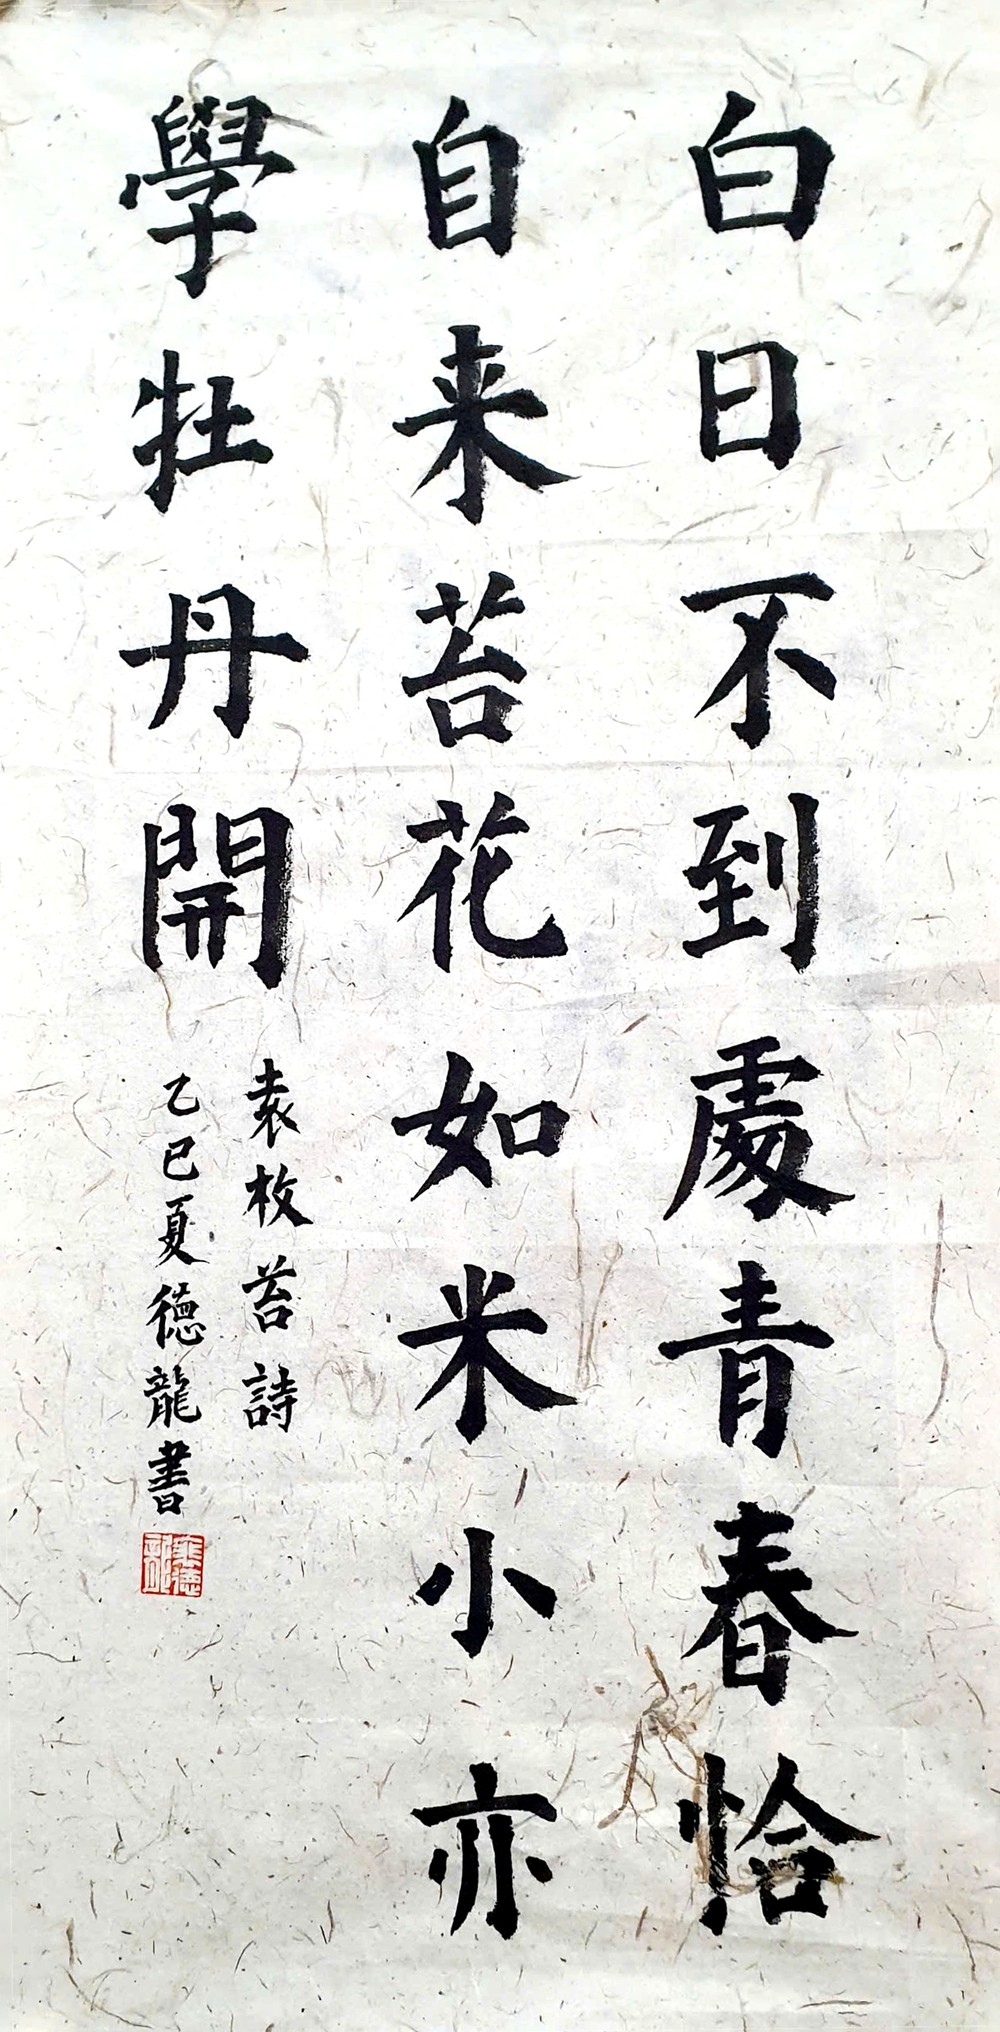 白日不到處青春恰
自来苔花如米小亦
學牡丹開
袁枚苔詩
乙巳夏德龍書